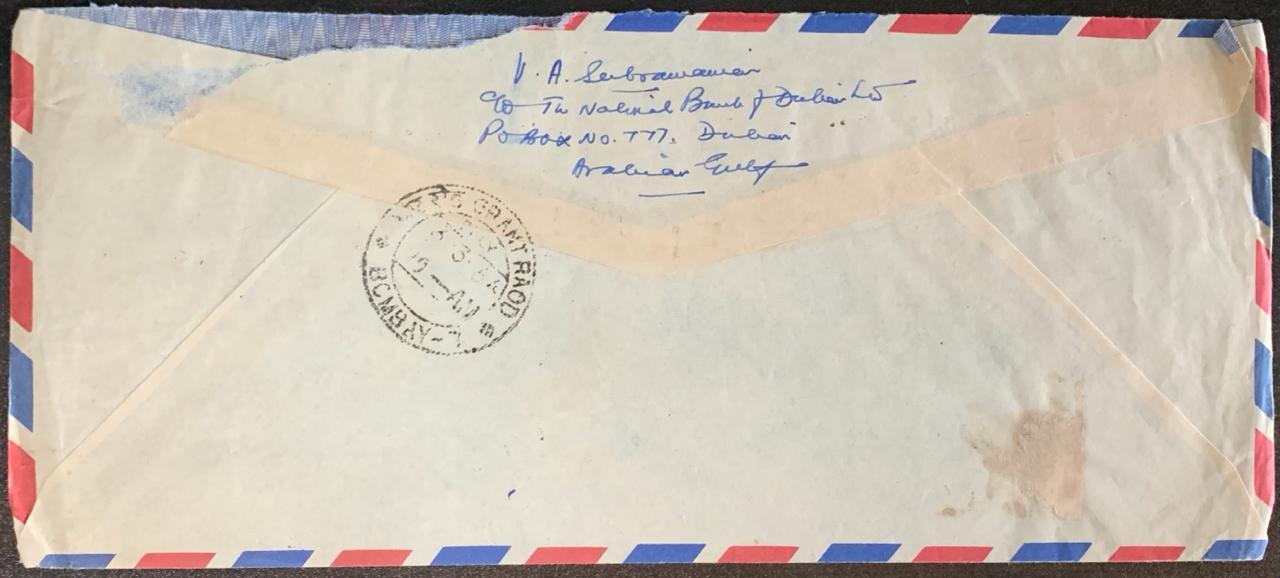 V. A. Subramanian
c/o The National Bank of Dubai Ltd
PO Box No. 777, Dubai
Arabian Gulf
GRANT RAOD
3. 64
AM
BOMBAY-7